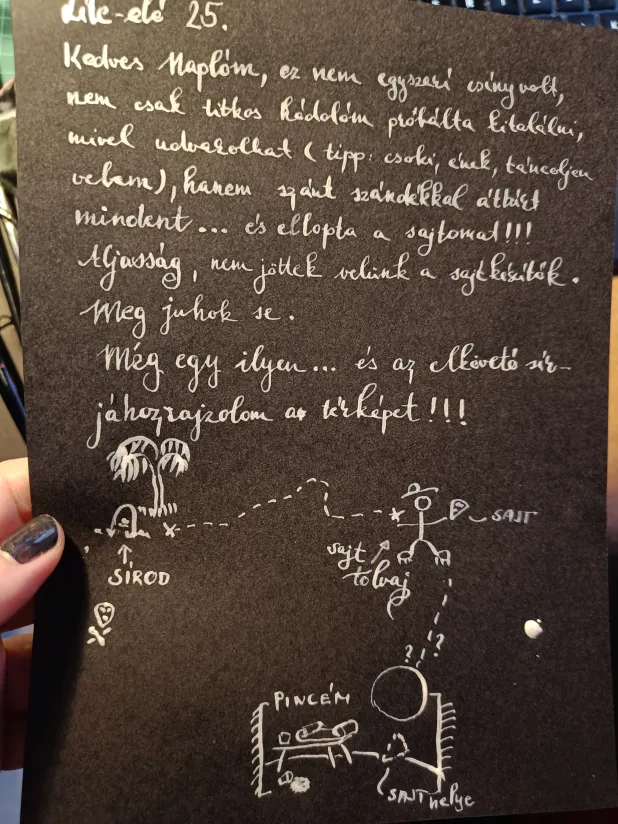 Lik-elé 25.
Kedves Naplóm, ez nem egyszerű csíny volt,
nem csak titkos hódolóm próbálta kitalálni,
mivel udvarolhat (tipp: csoki, ének, táncoljon
velem), hanem szánt szándékkal áthúzt
mindent... és ellopta a sajtomat!!!
Aljasság, nem jöttek velünk a sajtkészítők.
Meg juhok se.
Még egy ilyen... és az elkövető sír-
jához rajzolom a térképet!!!
SAJT
sajt
tolvaj
SÍROD
?!?
PINCÉM
SAJT helye